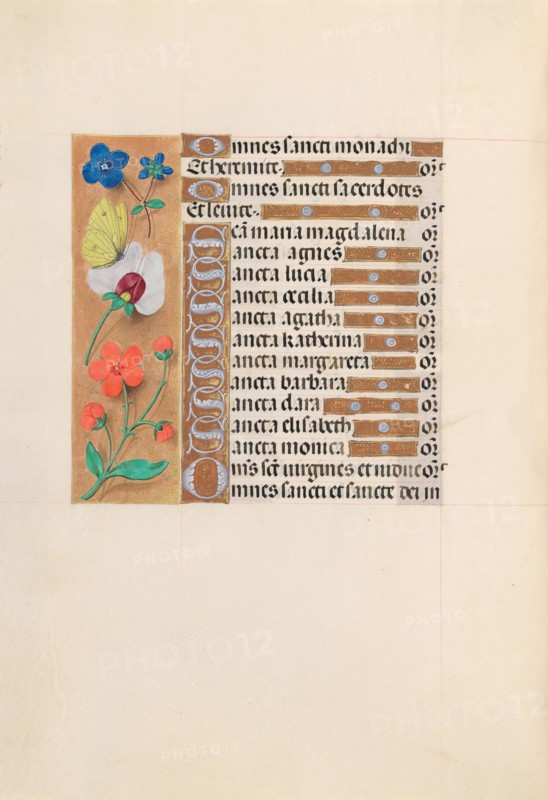 Omnes sancti monachi
Et heremite. or
Omnes sancti sacerdotes
Et levite. or
Sca maria magdalena or
Sancta agnes or
Sancta lucia or
Sancta cecilia or
Sancta agatha or
Sancta katherina or
Sancta margareta or
Sancta barbara or
Sancta clara or
Sancta elisabeth or
Sancta monica or
Oms sce virgines et vidue or
Omnes sancti et sancte dei in
PHOTO12